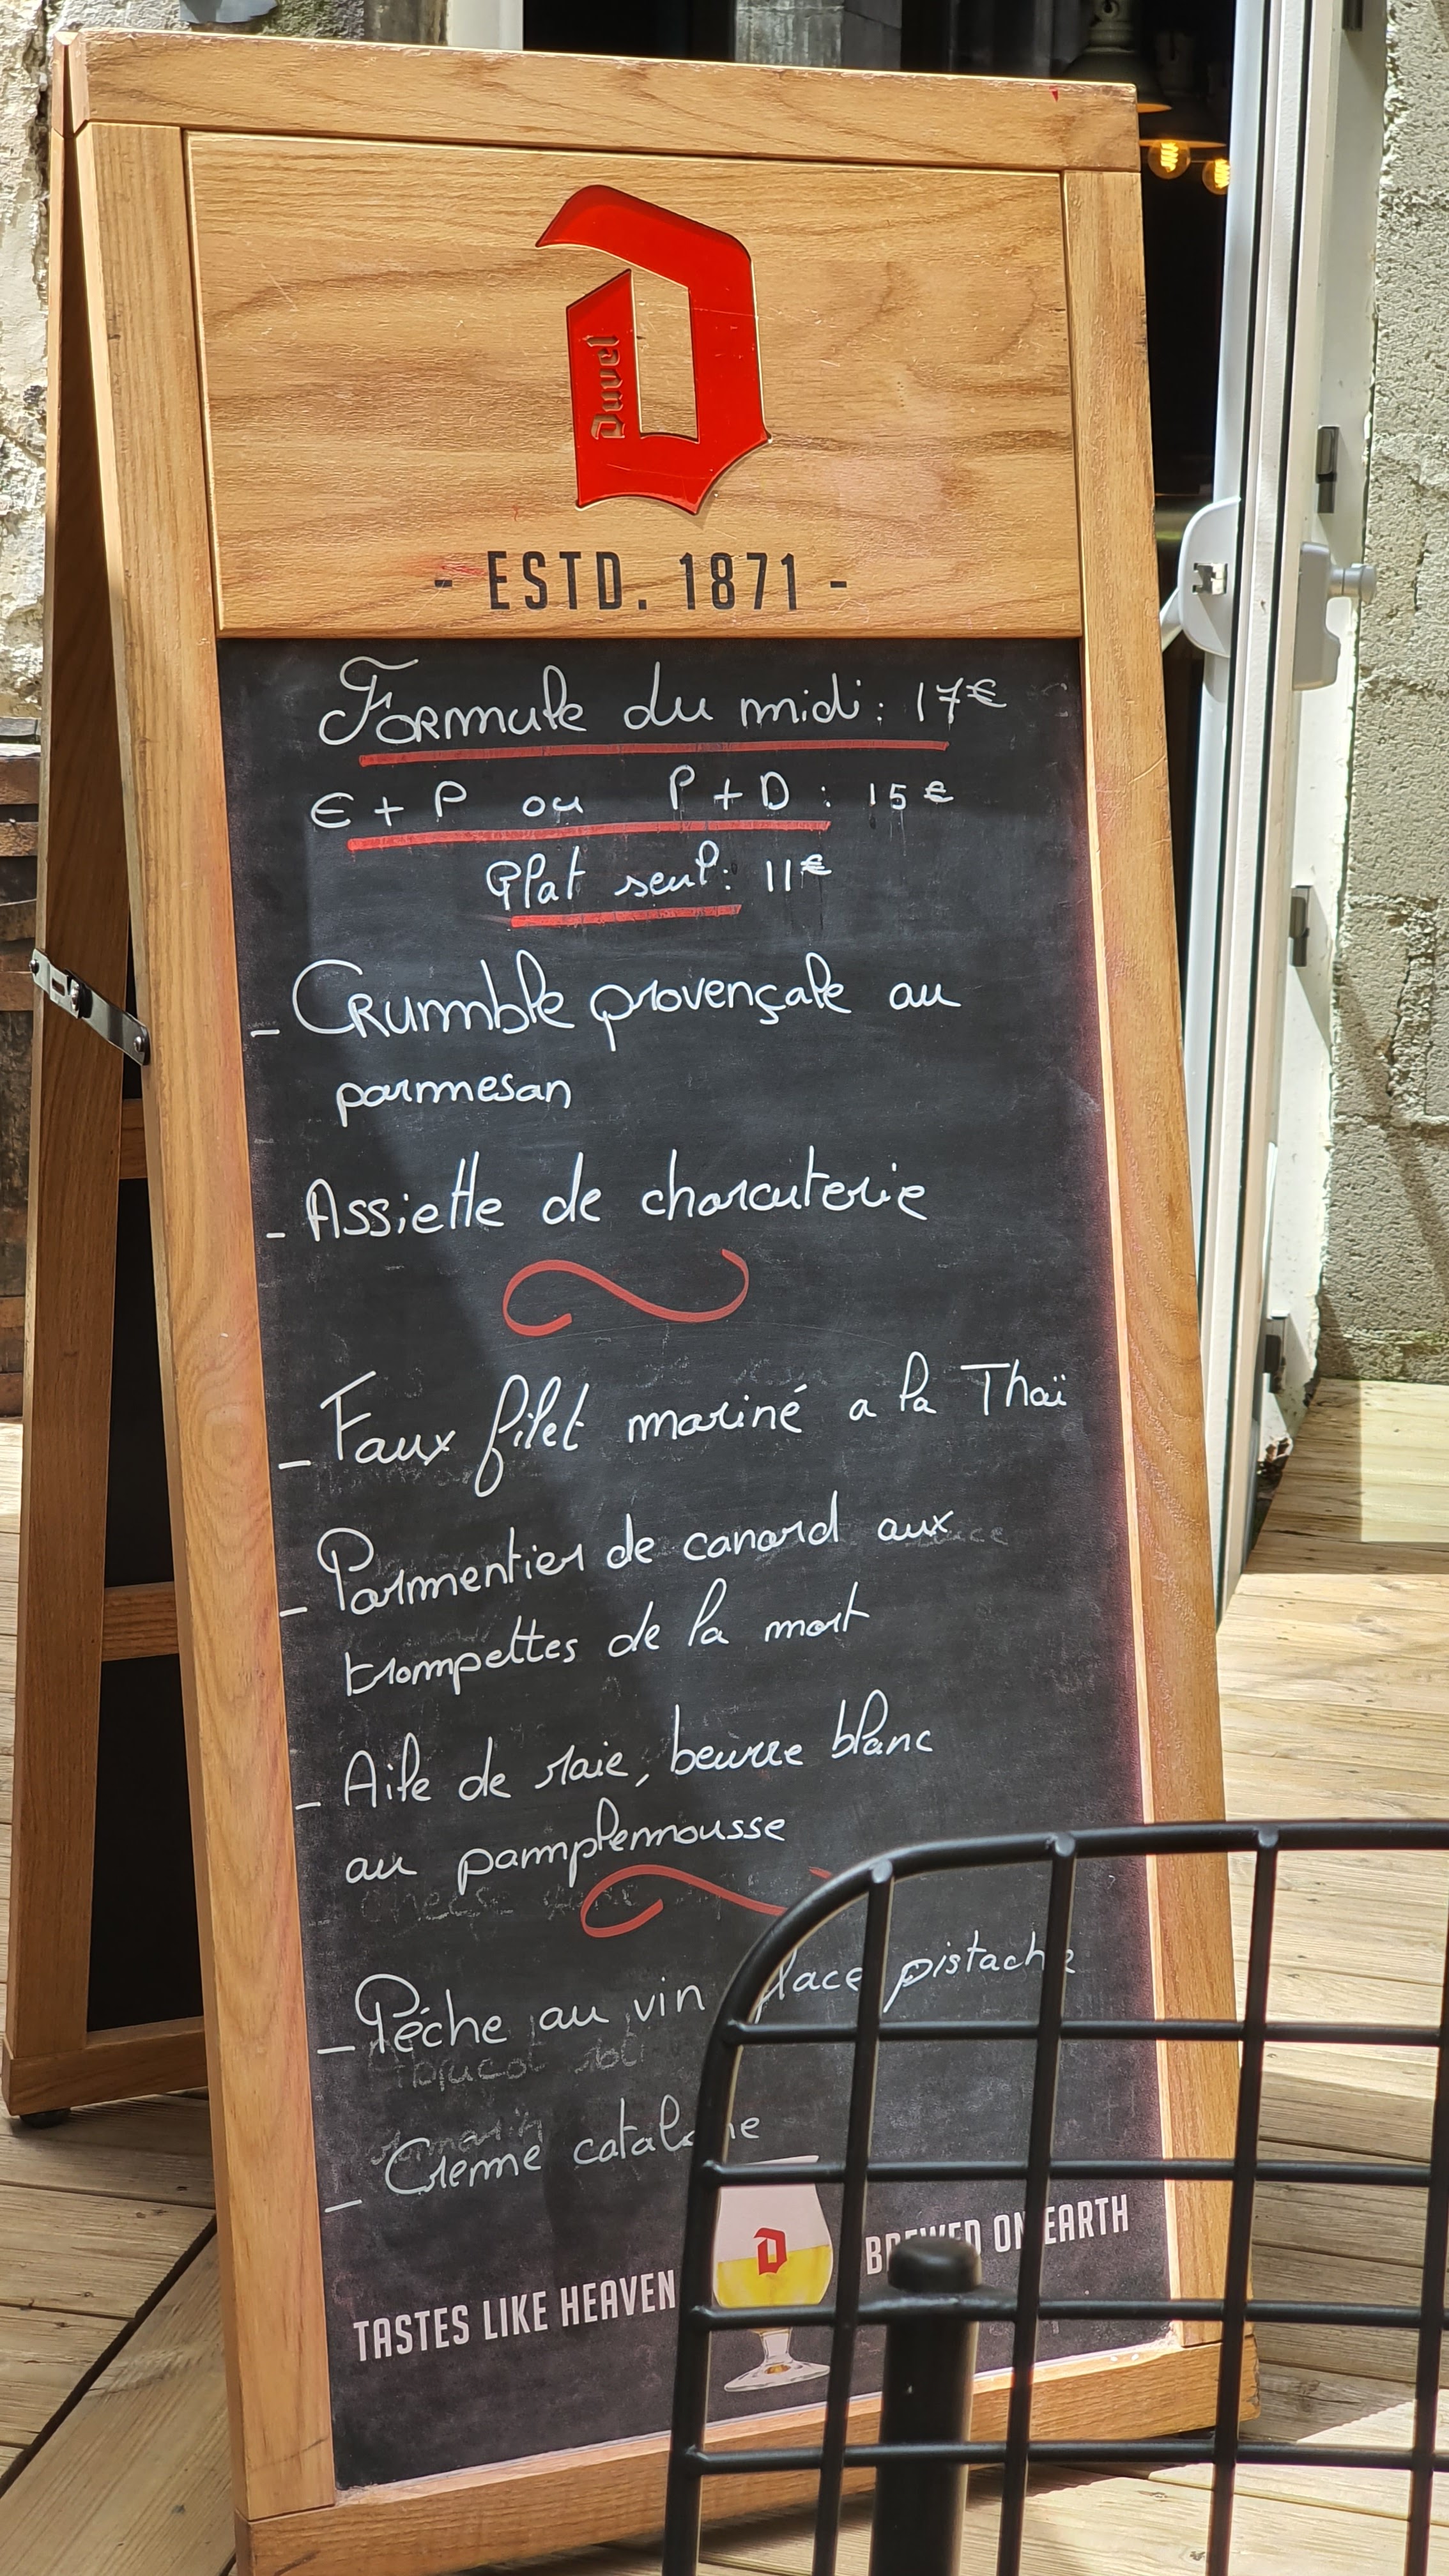 Duvel
- ESTD. 1871 -
Formule du midi : 17€
E + P ou P + D : 15€
Plat seul : 11€
- Crumble provençale au
parmesan
- Assiette de charcuterie
- Faux filet mariné a la Thaï
- Parmentier de canard aux
trompettes de la mort
- Aile de raie, beurre blanc
au pamplemousse
- Pêche au vin glace pistache
- Creme catalane
TASTES LIKE HEAVEN BREWED ON EARTH